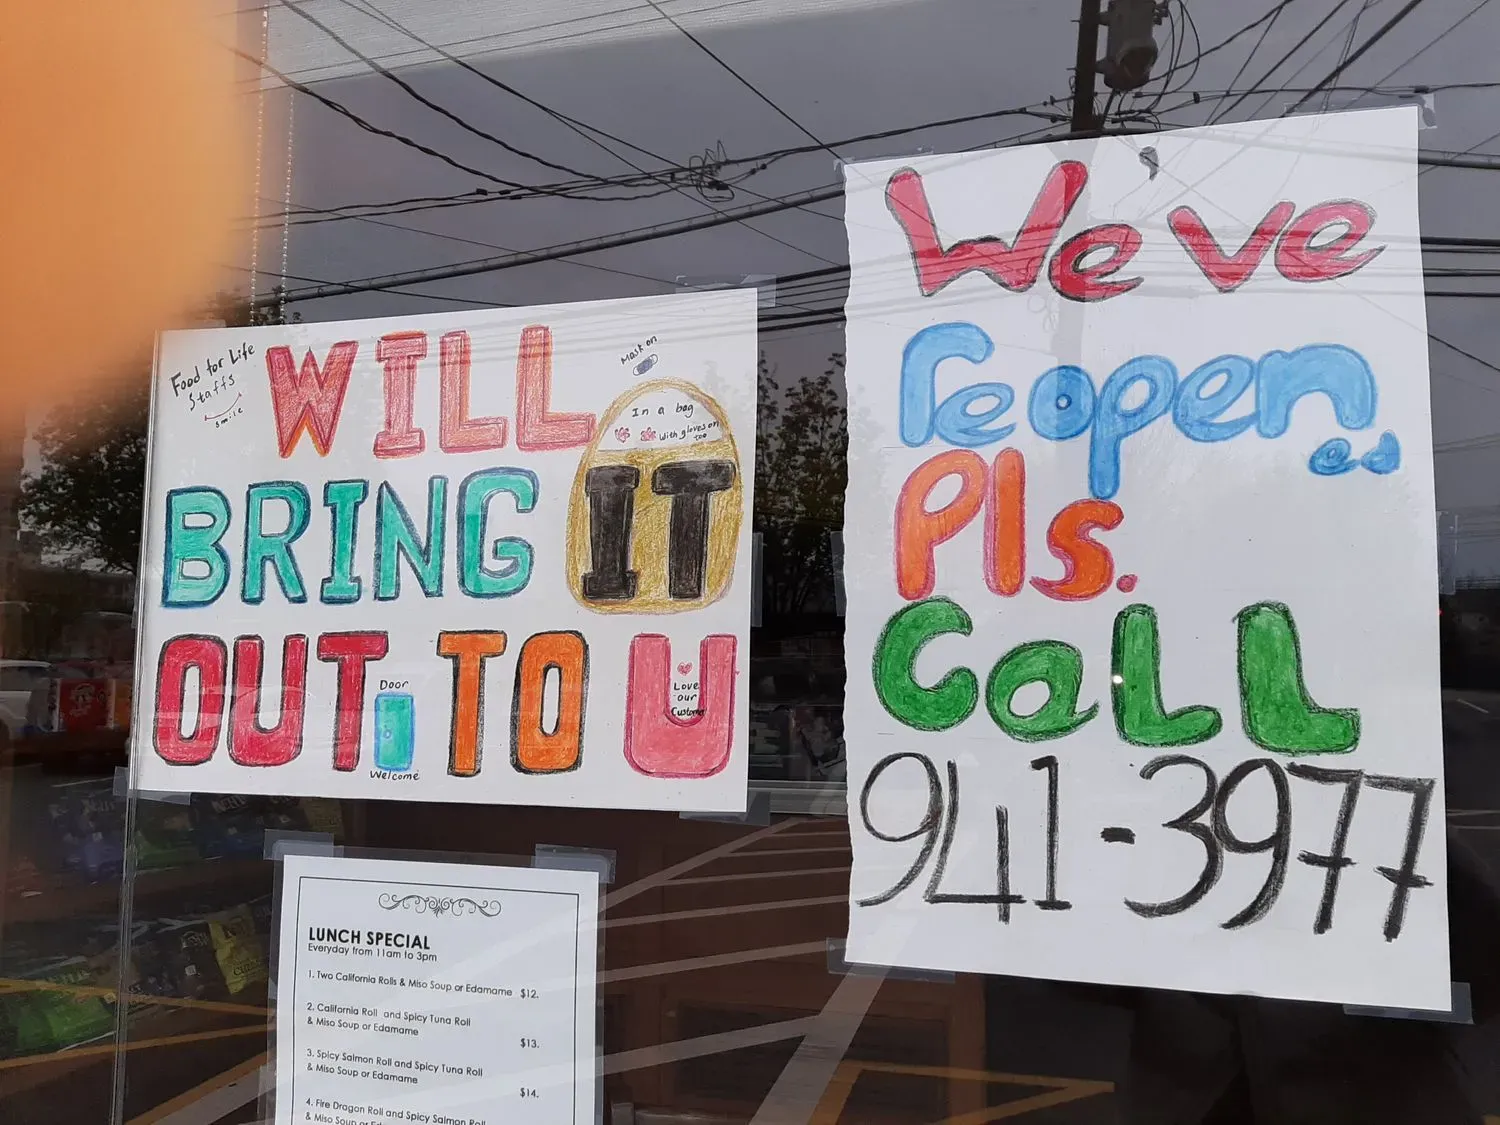 Food for Life
Staffs
smile
WILL
Mask on
In a bag
with gloves on
too
BRING IT
OUT TO U
Door
Welcome
Love
our
Customer
We've
reopen
ed
Pls.
Call
941-3977
LUNCH SPECIAL
Everyday from 11am to 3pm
1. Two California Rolls & Miso Soup or Edamame $12.
2. California Roll and Spicy Tuna Roll
& Miso Soup or Edamame
$13.
3. Spicy Salmon Roll and Spicy Tuna Roll
& Miso Soup or Edamame
$14.
4. Fire Dragon Roll and Spicy Salmon Roll
& Miso Soup or